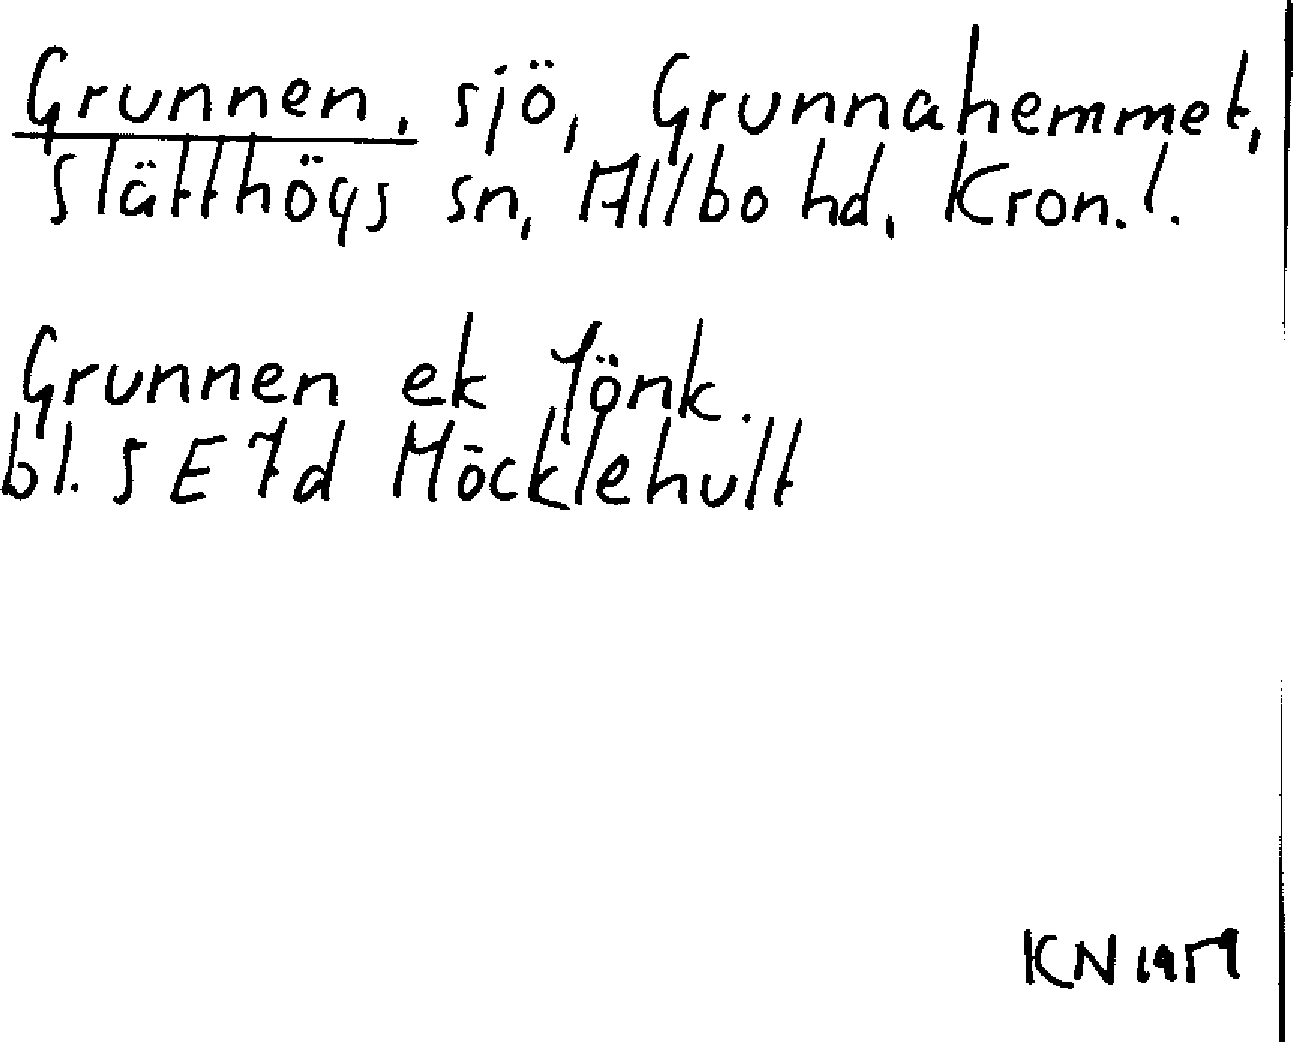 Grunnen, sjö, Grunnahemmet,
Slätthögs sn, Allbo hd, Kron.l.
Grunnen ek Jönk.
bl. S E 7d Möcklehult
KN 1959